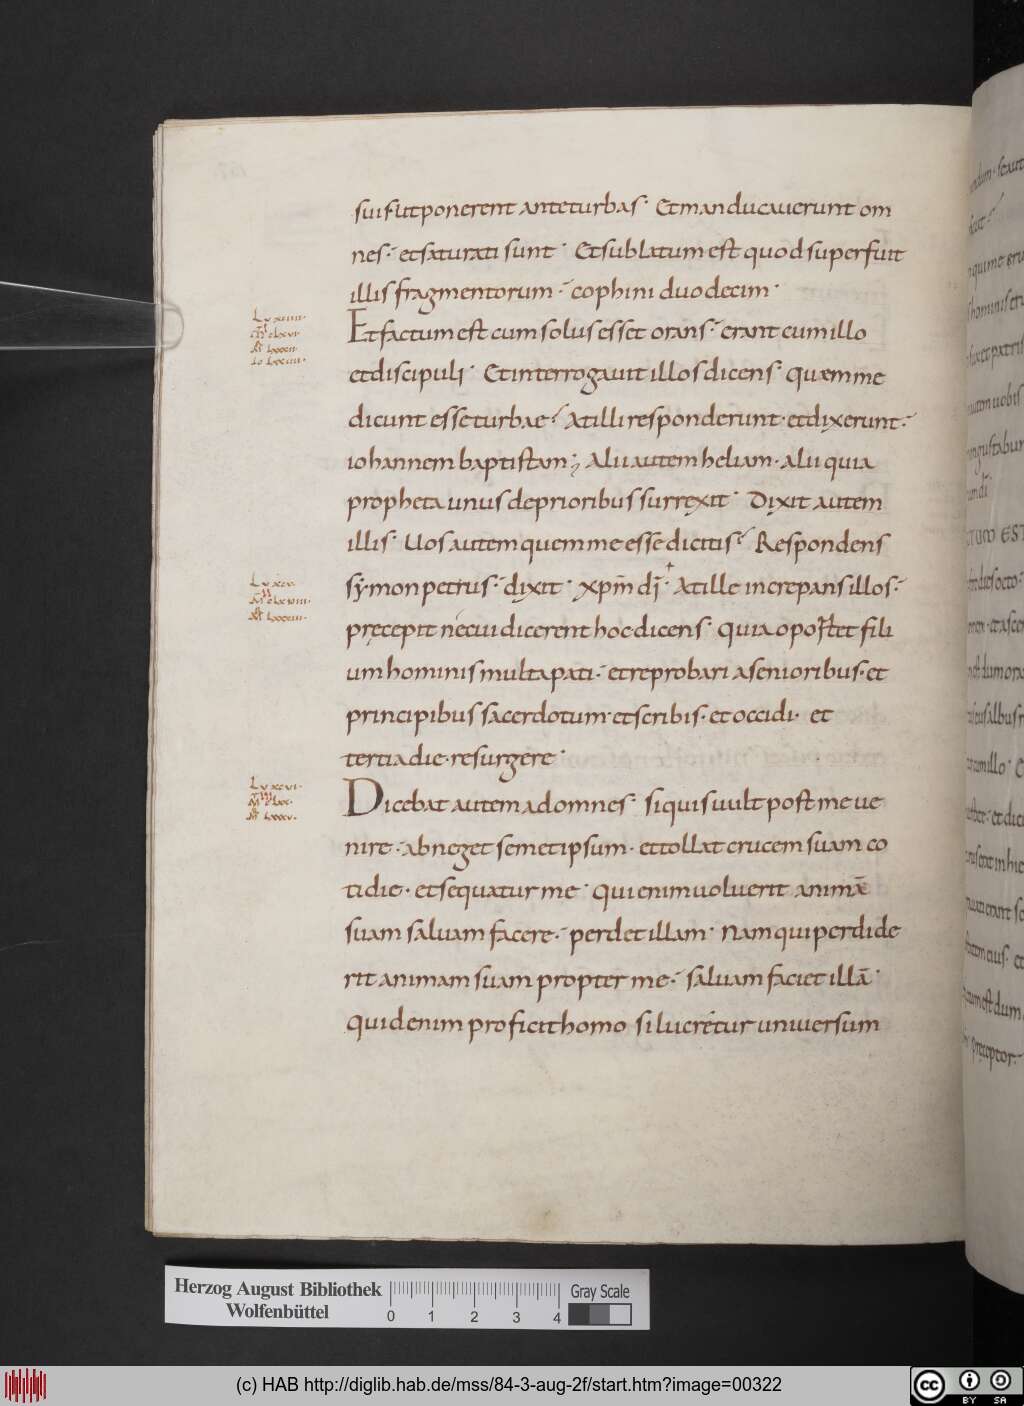 suis ut ponerent ante turbas· Et manducauerunt om
nes· et saturati sunt· Et sublatum est quod superfuit
illis fragmentorum· cophini duodecim·
Et factum est cum solus esset orans· erant cum illo
et discipuli· Et interrogauit illos dicens· Quem me
dicunt esse turbae· At illi responderunt· et dixerunt·
iohannem baptistam; Alii autem heliam· alii quia
propheta unus de prioribus surrexit· Dixit autem
illis· Uos autem quem me esse dicitis· Respondens
symon petrus· dixit· xpm̄ dī· At ille increpans illos·
pręcepit ne cui dicerent hoc dicens· Quia oportet fili
um hominis multa pati· et reprobari a senioribus· et
principibus sacerdotum· et scribis· et occidi· et
tertia die· resurgere·
Dicebat autem ad omnes· si quis uult post me ue
nire· abneget semetipsum· et tollat crucem suam co
tidie· et sequatur me· Qui enim uoluerit animā
suam saluam facere· perdet illam· Nam qui perdide
rit animam suam propter me· saluam faciet illā·
Quid enim proficit homo si lucretur uniuersum
Herzog August Bibliothek
Wolfenbüttel
0 1 2 3 4
Gray Scale
(c) HAB http://diglib.hab.de/mss/84-3-aug-2f/start.htm?image=00322
cc BY SA